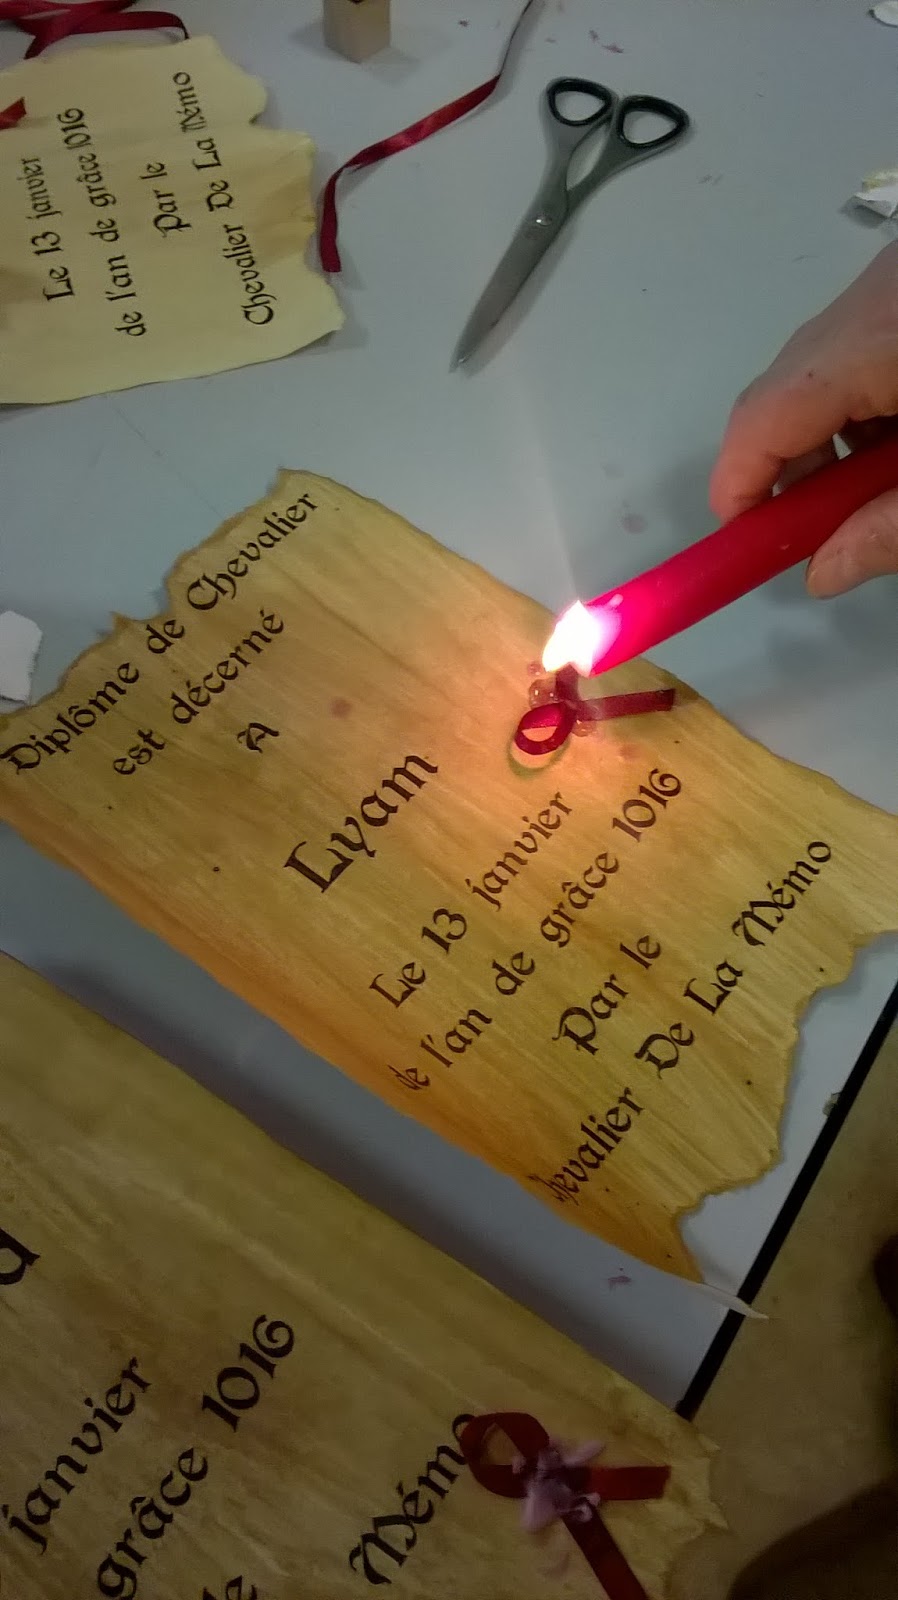 Le 13 janvier
de l'an de grâce 1016
Par le
Chevalier De La Mémo
Diplôme de Chevalier
est décerné
A
Lyam
Le 13 janvier
de l'an de grâce 1016
Par le
Chevalier De La Mémo
janvier
grâce 1016
Mémo